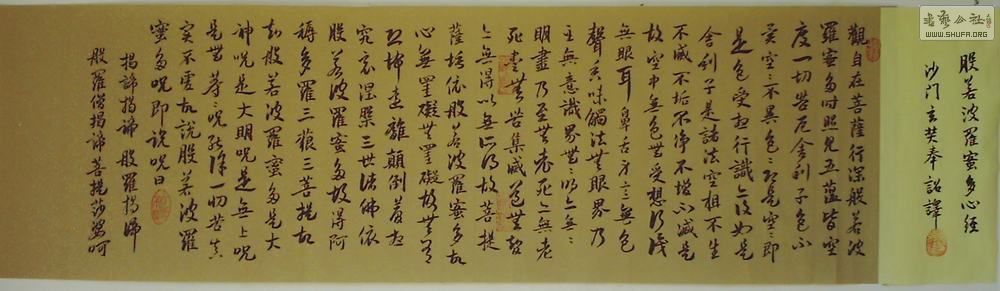 般若波羅蜜多心經
沙门玄奘奉詔譯
觀自在菩薩行深般若波
羅蜜多时照見五蕴皆空
度一切苦厄舍利子色不
異空〻不異色〻即是空〻即
是色受想行識亦復如是
舍利子是諸法空相不生
不滅不垢不净不增不减是
故空中無色無受想行識
無眼耳鼻舌身意無色
聲香味觸法無眼界乃
至無意識界無〻明亦無〻
明盡乃至無老死亦無老
死盡無苦集滅道無智
亦無得以無所得故菩提
薩埵依般若波羅蜜多故
心無罣礙無罣礙故無有
恐怖遠離顛倒夢想
究竟涅槃三世诸佛依
般若波羅蜜多故得阿
耨多羅三藐三菩提故
知般若波羅蜜多是大
神咒是大明咒是無上呪
是無等〻呪能除一切苦真
實不虛故說般若波羅
蜜多呪即說呪曰
揭諦揭諦般羅揭諦
般羅僧揭諦菩提莎婆呵
書藝公社
WWW.SHUFA.ORG